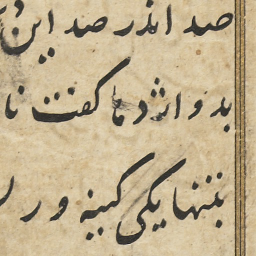 صد اندر صد این
بدو اژدها کفت
بتنها یکی کینه ور